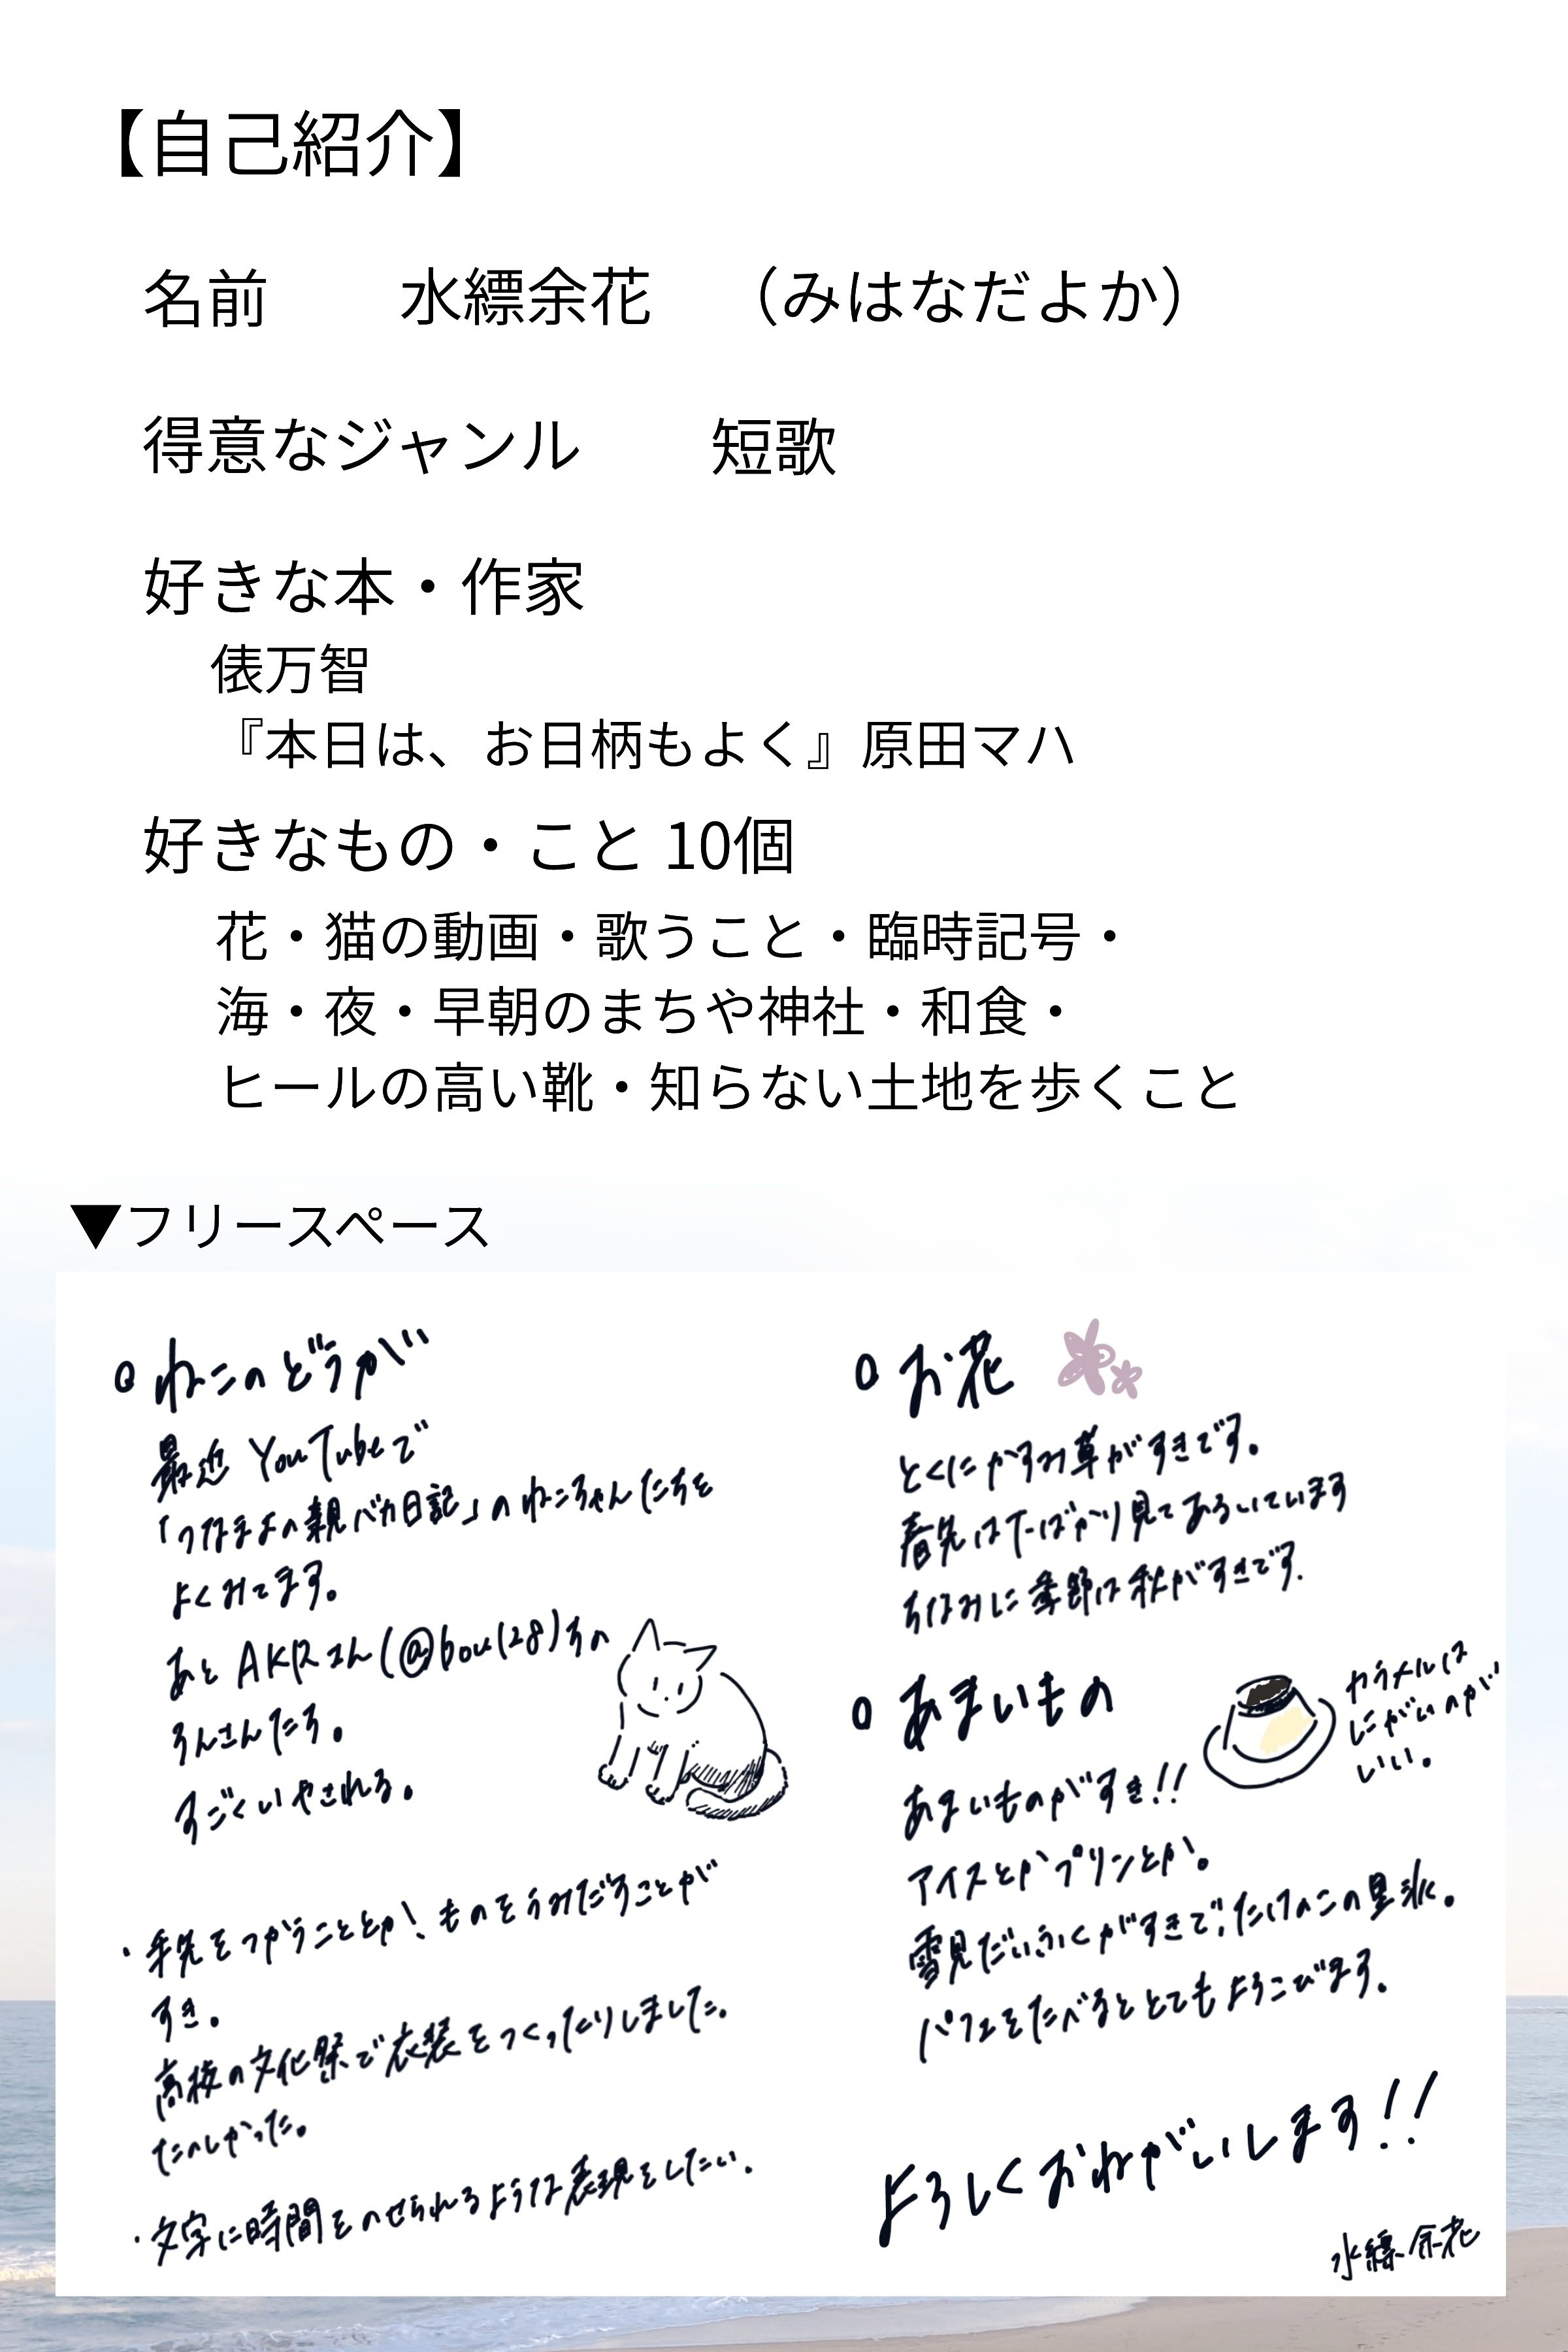 【自己紹介】
名前 水縹余花 （みはなだよか）
得意なジャンル 短歌
好きな本・作家
俵万智
『本日は、お日柄もよく』原田マハ
好きなもの・こと 10個
花・猫の動画・歌うこと・臨時記号・
海・夜・早朝のまちや神社・和食・
ヒールの高い靴・知らない土地を歩くこと
▼フリースペース
ねこのどうが
最近 YouTubeで
「つなまよの親バカ日記」のねこちゃんたちを
よくみてます。
あと AKRさん(@bou128)ちの
ろんさんたち。
すごくいやされる。
・手先をつかうこととか、ものをうみだすことが
すき。
高校の文化祭で衣装をつくったりしました。
たのしかった。
・文字に時間をのせられるような表現をしたい。
お花
とくにかすみ草がすきです。
春先は下ばかり見てあるいています
ちなみに季節は秋がすきです.
あまいもの
カラメルは
にがいのが
いい。
あまいものがすき!!
アイスとかプリンとか。
雪見だいふくがすきで、たけのこの里派。
パフェをたべるととてもよろこびます。
よろしくおねがいします!!
水縹余花